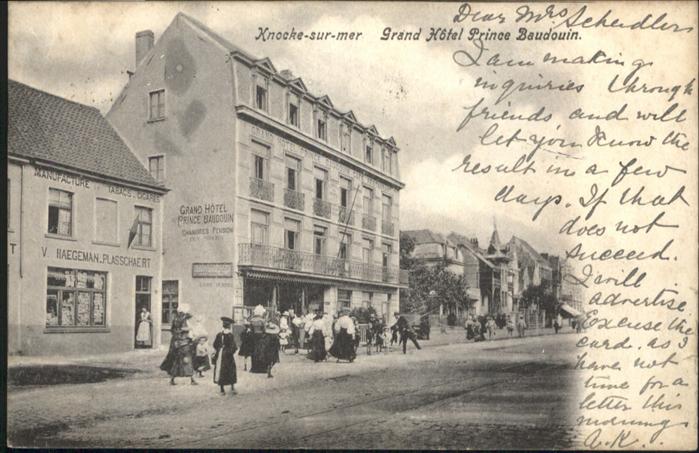 Knocke-sur-mer Grand Hôtel Prince Baudouin.
Dear Mrs Scheidler
I am making
inquiries through
friends and will
let you know the
result in a few
days. If that
does not
succeed.
I will
advertise.
Excuse the
card. as I
have not
time for a
letter this
morning
A.K.
MANUFACTURE TABACS CIGARES
V. HAEGEMAN-PLASSCHAERT
T
GRAND HÔTEL
PRINCE BAUDOUIN
CHAMBRES PENSION
GRAND HOTEL PRINCE